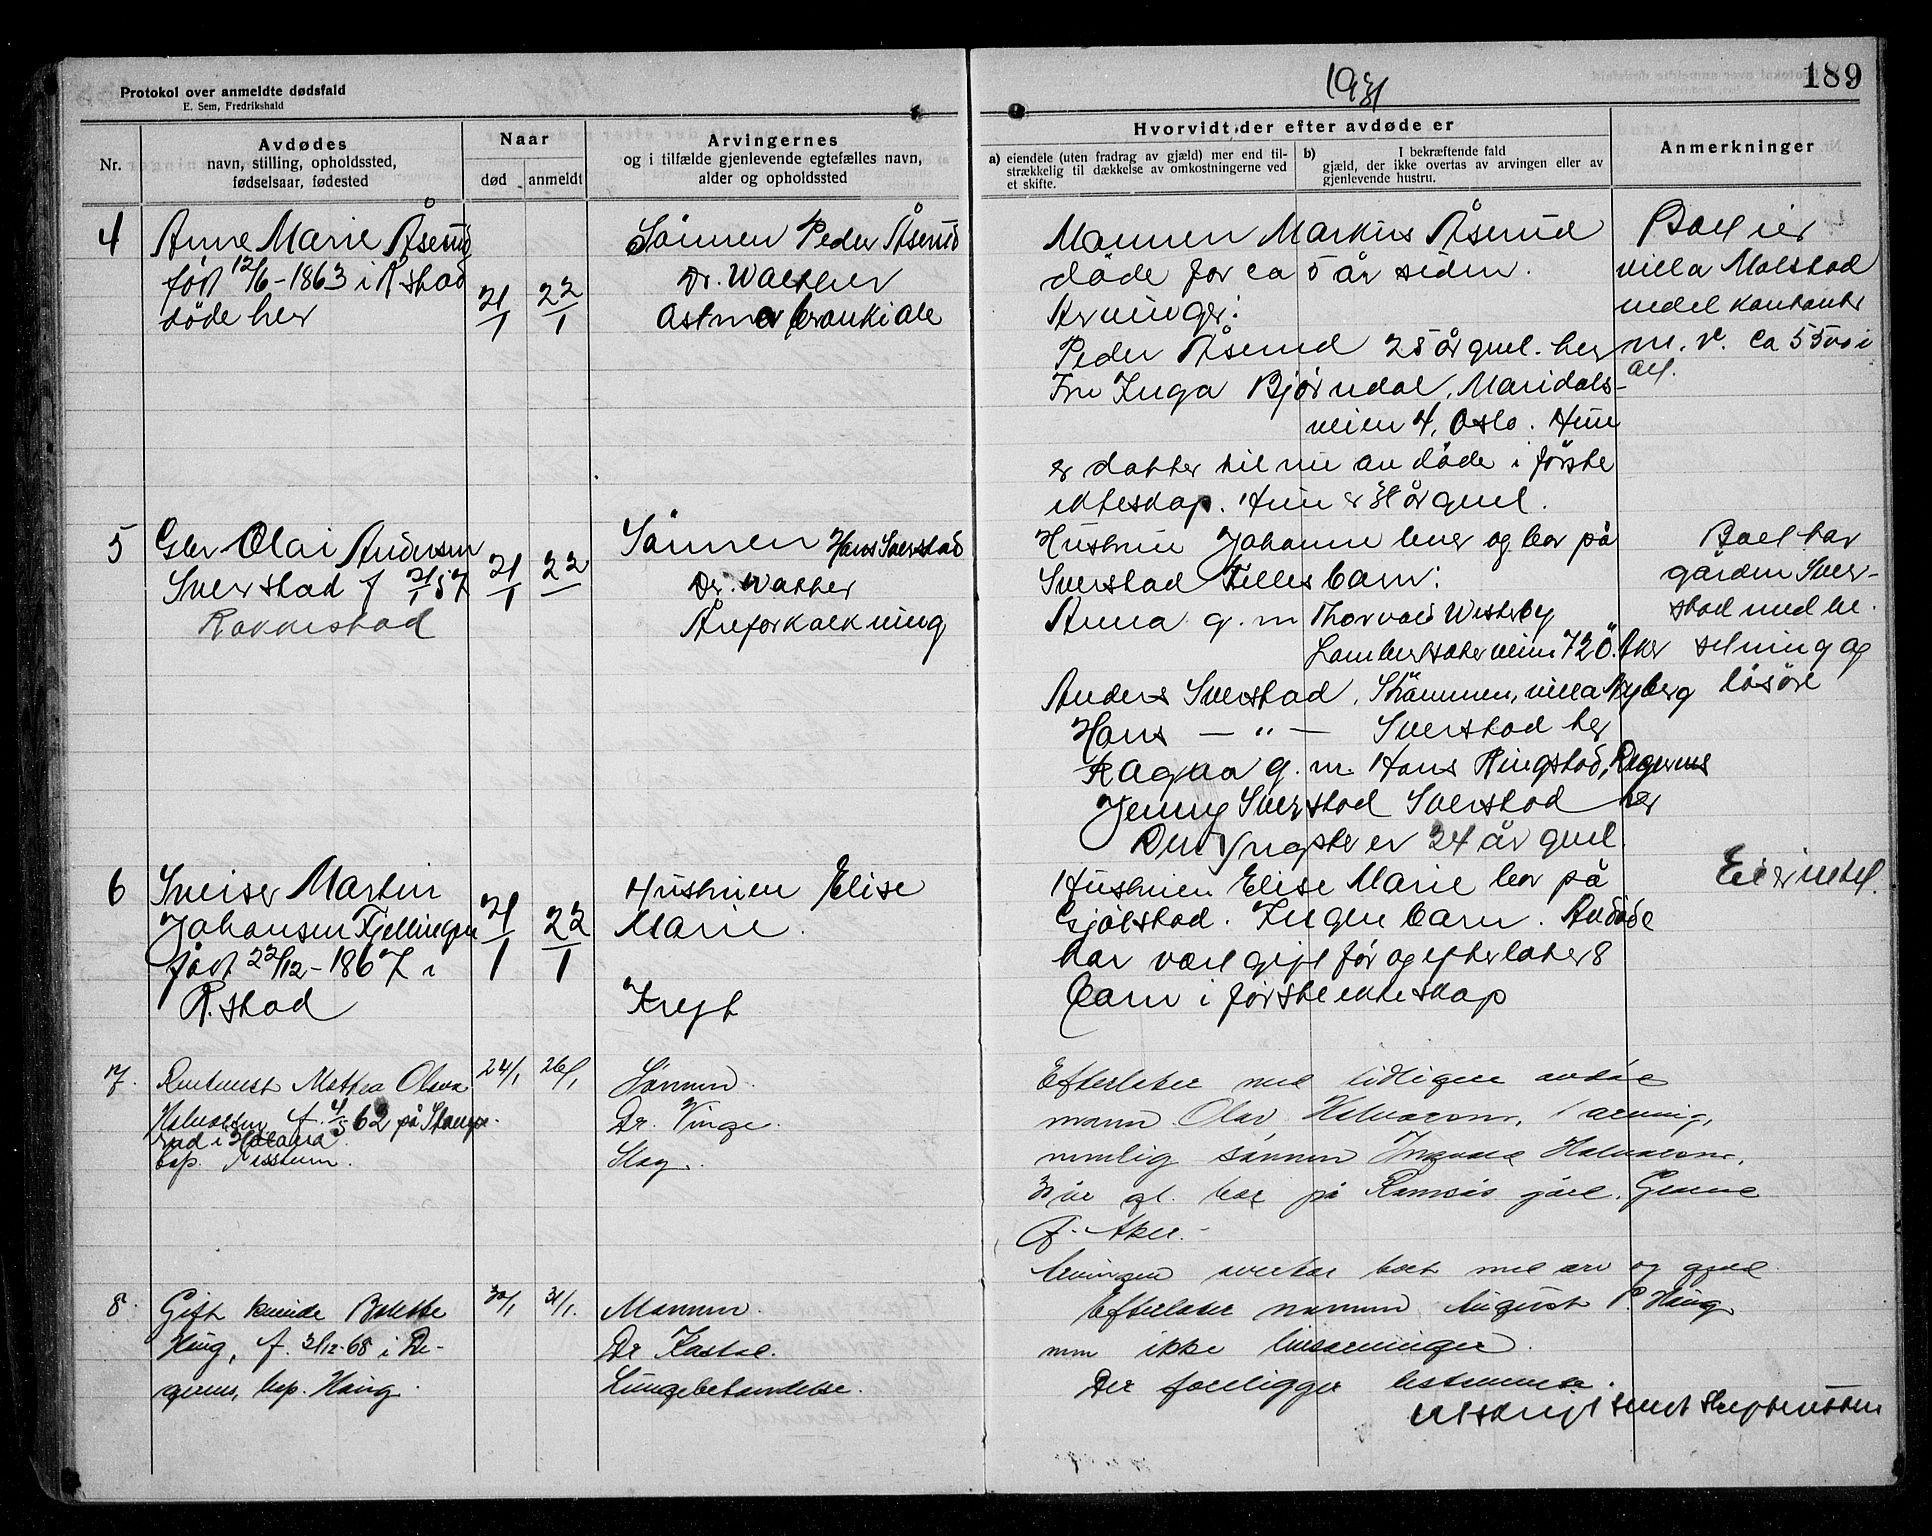 Protokol over anmeldte dødsfald
E. Sem, Fredrikshald
1931
189
Nr.
Avdødes
navn, stilling, opholdssted,
fødselsaar, fødested
Naar
død
anmeldt
Arvingernes
og i tilfælde gjenlevende egtefælles navn,
alder og opholdssted
Hvorvidt der efter avdøde er
a) eiendele (uten fradrag av gjæld) mer end til-
strækkelig til dækkelse av omkostningerne ved
et skifte.
b) I bekræftende fald
gjæld, der ikke overtas av arvingen eller av
gjenlevende hustru.
Anmerkninger
4
Anne Marie Åserud
født 12/6-1863 i R.stad
døde her
21/1
22/1
Sønnen Peder Åserud
Dr. Walther
Astma bronkiale
Mannen Markus Åserud
døde for ca 5 år siden.
Arvinger:
Peder Åserud 25 år gml. her
Fru Inga Bjørndal, Maridals-
veien 4, Oslo. Hun
er datter til nu av døde i første
ekteskap. Hun er 38 år gml.
Boet eier
villa Molstad
m. v. ca 5500 i
5
Olai Andersen
Sverstad f 21/1 57
Rakkestad
21/1
22
Sønnen Hans Sverstad
Dr. Walther
Åreforkalkning
Hustrun Johanne lever og bor på
Sverstad Fellesbarn:
Anna g. m Thorvald Westby
Lambertseterveien 72 Ö. Aker
Anders Sverstad, Strømmen, villa Nyberg
Hans — " — Sverstad her
Ragna g. m. Hans Ringstad, Degernes
Jenny Sverstad Sverstad her
Den yngste er 24 år gml.
Boet har
gården Sver-
stad med be-
setning og
løsøre
6
Sveiser Martin
Johansen Fjellengen
født 22/12-1867 i
R.stad
21/1
22/1
Hustruen Elise
Marie.
Kreft
Hustruen Elise Marie bor på
Gjølstad. Ingen barn. Avdøde
har vært gift før og efterlater 8
barn i første ekteskap
Eier intet.
7.
Mathea Olava
Halvorsen f. 4/5 62 på Stange-
rud i
bop.
24/1
26/1
Sønnen.
Dr. Vinge.
Slag.
Efterlater med tidligere avdøde
mann Olav Halvorsen, 1 arving,
nemlig sønnen Ingvald Halvorsen,
år gl. bor på gård,
Aker.
Arvingen overtar boet med arv og gjeld
8.
Gift kvinde Bolette
Haug, f. 31/12-68 i De-
gernes, bop. Haug.
30/1
31/1.
Mannen.
Dr Kastad.
Lungebetendelse.
Efterlater mannen August P. Haug
men ikke livsarvinger.
Der foreligger testamente.
Utskrift sendt Skifteretten